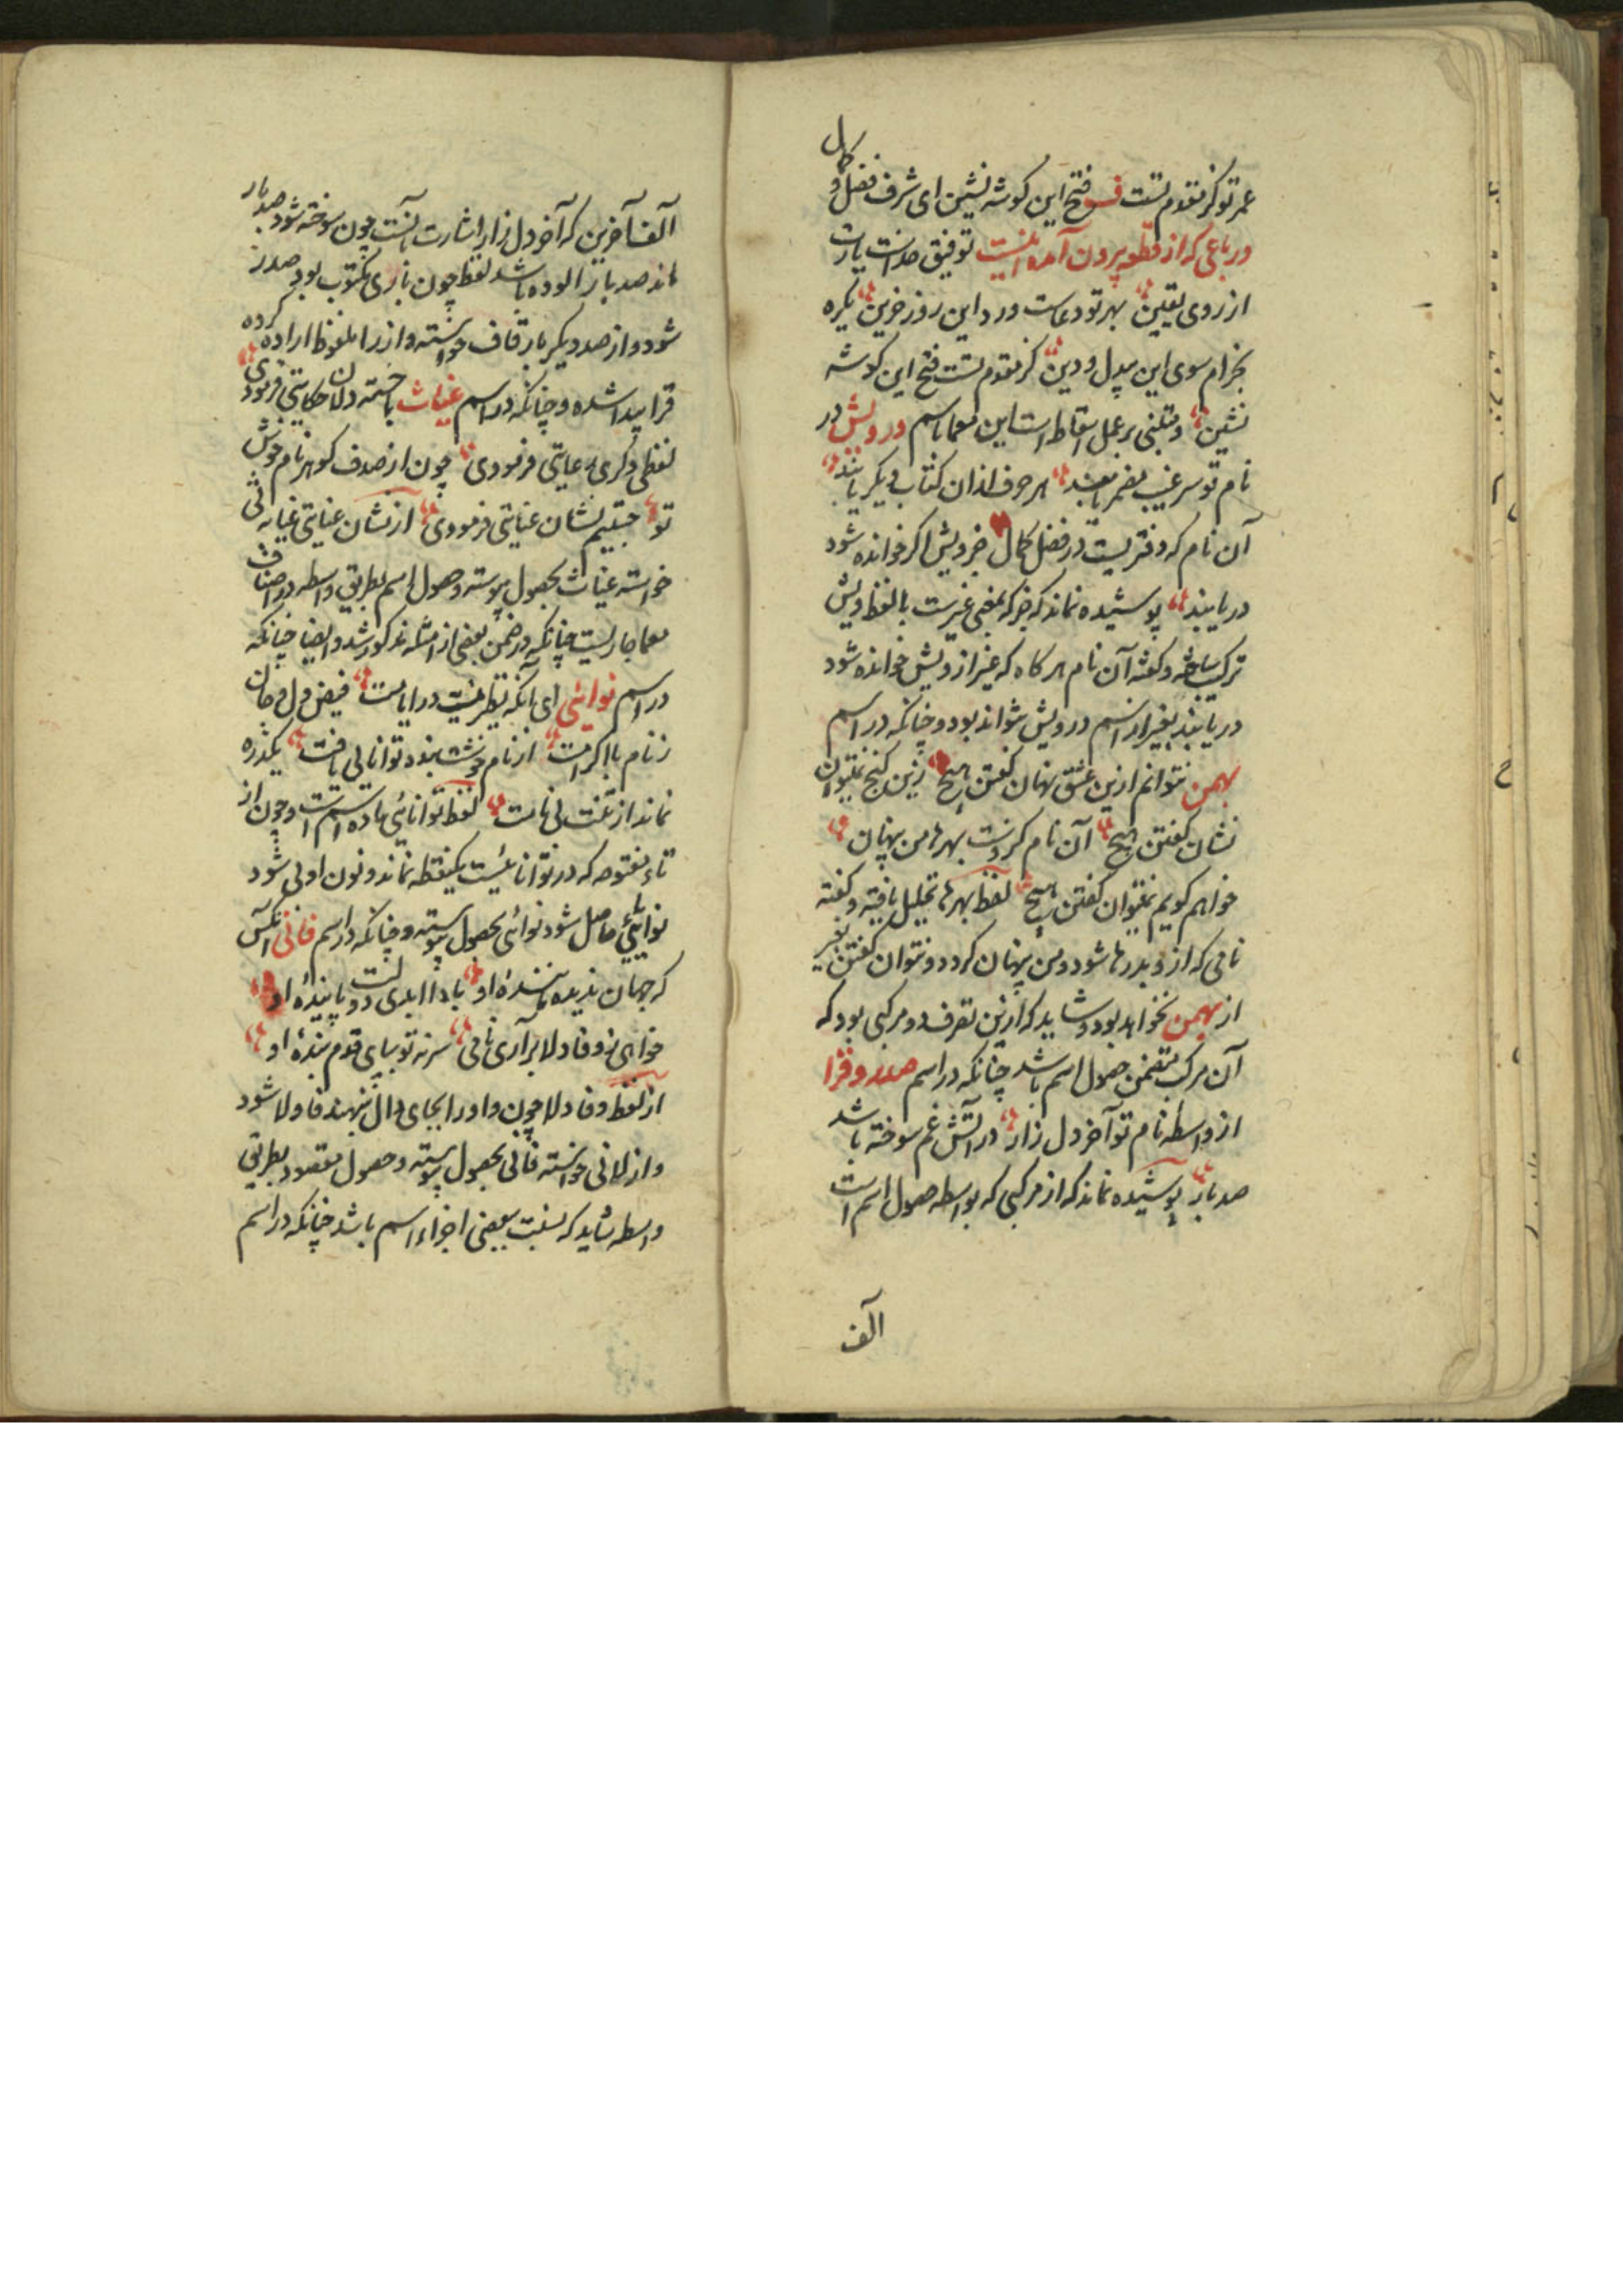 عمر تو کز مقدم تست فتح این کوشه نشین ای شرف فضل و کمال
ورباعی که از قطعه بیرون آمده اینست توفیق خدات یار
از روی یقین بهر تو دعاست ورد این روز حزین یکره
بخرام سوی این بیدل و دین کز مقدم تست فتح این کوشه
نشین ومبتنی بر عمل اسقاط است این معما باسم درویش در
نام تو سر غیب مضمر یابند هر حرف ازان کتاب دیکر یابند
آن نام که دفتریست در فضل کمال جز ویش اکر خوانده شود
دریابند پوشیده نماند که جز که بمعنی غیرست با لفظ ویش
ترکیب ساخته وکفته آن نام هرکاه که غیر از ویش خوانده شود
دریابند بغیر از اسم درویش نتواند بود وچنانکه در اسم
بهمن نتوانم ازین عشق نهان کفتن هیچ زین کنج نمیتوان
نشان کفتن هیچ آن نام کزوست بهرها من پنهان
خواهم کویم نمیتوان کفتن هیچ لفظ بهرها تحلیل یافته وکفته
نامی که ازو به در ها شود ومن پنهان کردد ونتوان کفتن بغیر
از بهمن نخواهد بود وشاید که ازین تصرف دو مرکبی بود که
آن مرکب متضمن حصول اسم باشد چنانکه در اسم صدر وقرا
از واسطه نام تو آخر دل زار در آتش غم سوخته باشد
صد بار پوشیده نماند که از مرکبی که بواسطه حصول اسم است
الف
الف آخرین که آخر دل زار اشارت بآنست چون سوخته شود صد بار
ماند صد بار الوده باشد لفظ چون با ری مکتوب بود صدر
شود واز صد دیکر بار قاف خواسته واز را ملفوظ اراده کرده
قرا پیدا شده وچنانکه در اسم غیاث با خسته دلان حکایتی فرمودی
لفظی وکری رعایتی فرمودی چون از صدف کوهر نام خوش
تو جستیم نشان عنایتی فرمودی از نشان عنایتی غیا به ثی
خواسته غیاث بحصول پیوسته وحصول اسم بطریق واسطه در اصناف
معما جاریست چنانکه در ضمن بعضی از امثله مذکور شد وایضا چنانکه
در اسم نوائی ای آنکه نظیر نیست در ایامت فیض دل و جان
ز نام با اکرامت از نام خوشت بنده توانایی یافت یکذره
نماند از تفت بی نامت لفظ توانائی ماده اسم است وچون از
تاء مفتوحه که در توانائیست یکنقطه نماند ونون اولی شود
نوانائی حاصل شود نوائی بحصول پیوسته وچنانکه در اسم فانی آنکس
که جهان ندیده مانندهٔ او بادا ابدی دولت پایندهٔ او
خواهی ز وفا دلا برآری نامی سر نه تو بپای قدم بندهٔ او
از لفظ وفا دلا چون واو را بجای دال بنهند فا ولا شود
واز لا نی خواسته فانی بحصول پیوسته وحصول مقصود بطریق
واسطه شاید که بنسبت ببعضی اجزاء اسم باشد چنانکه در اسم